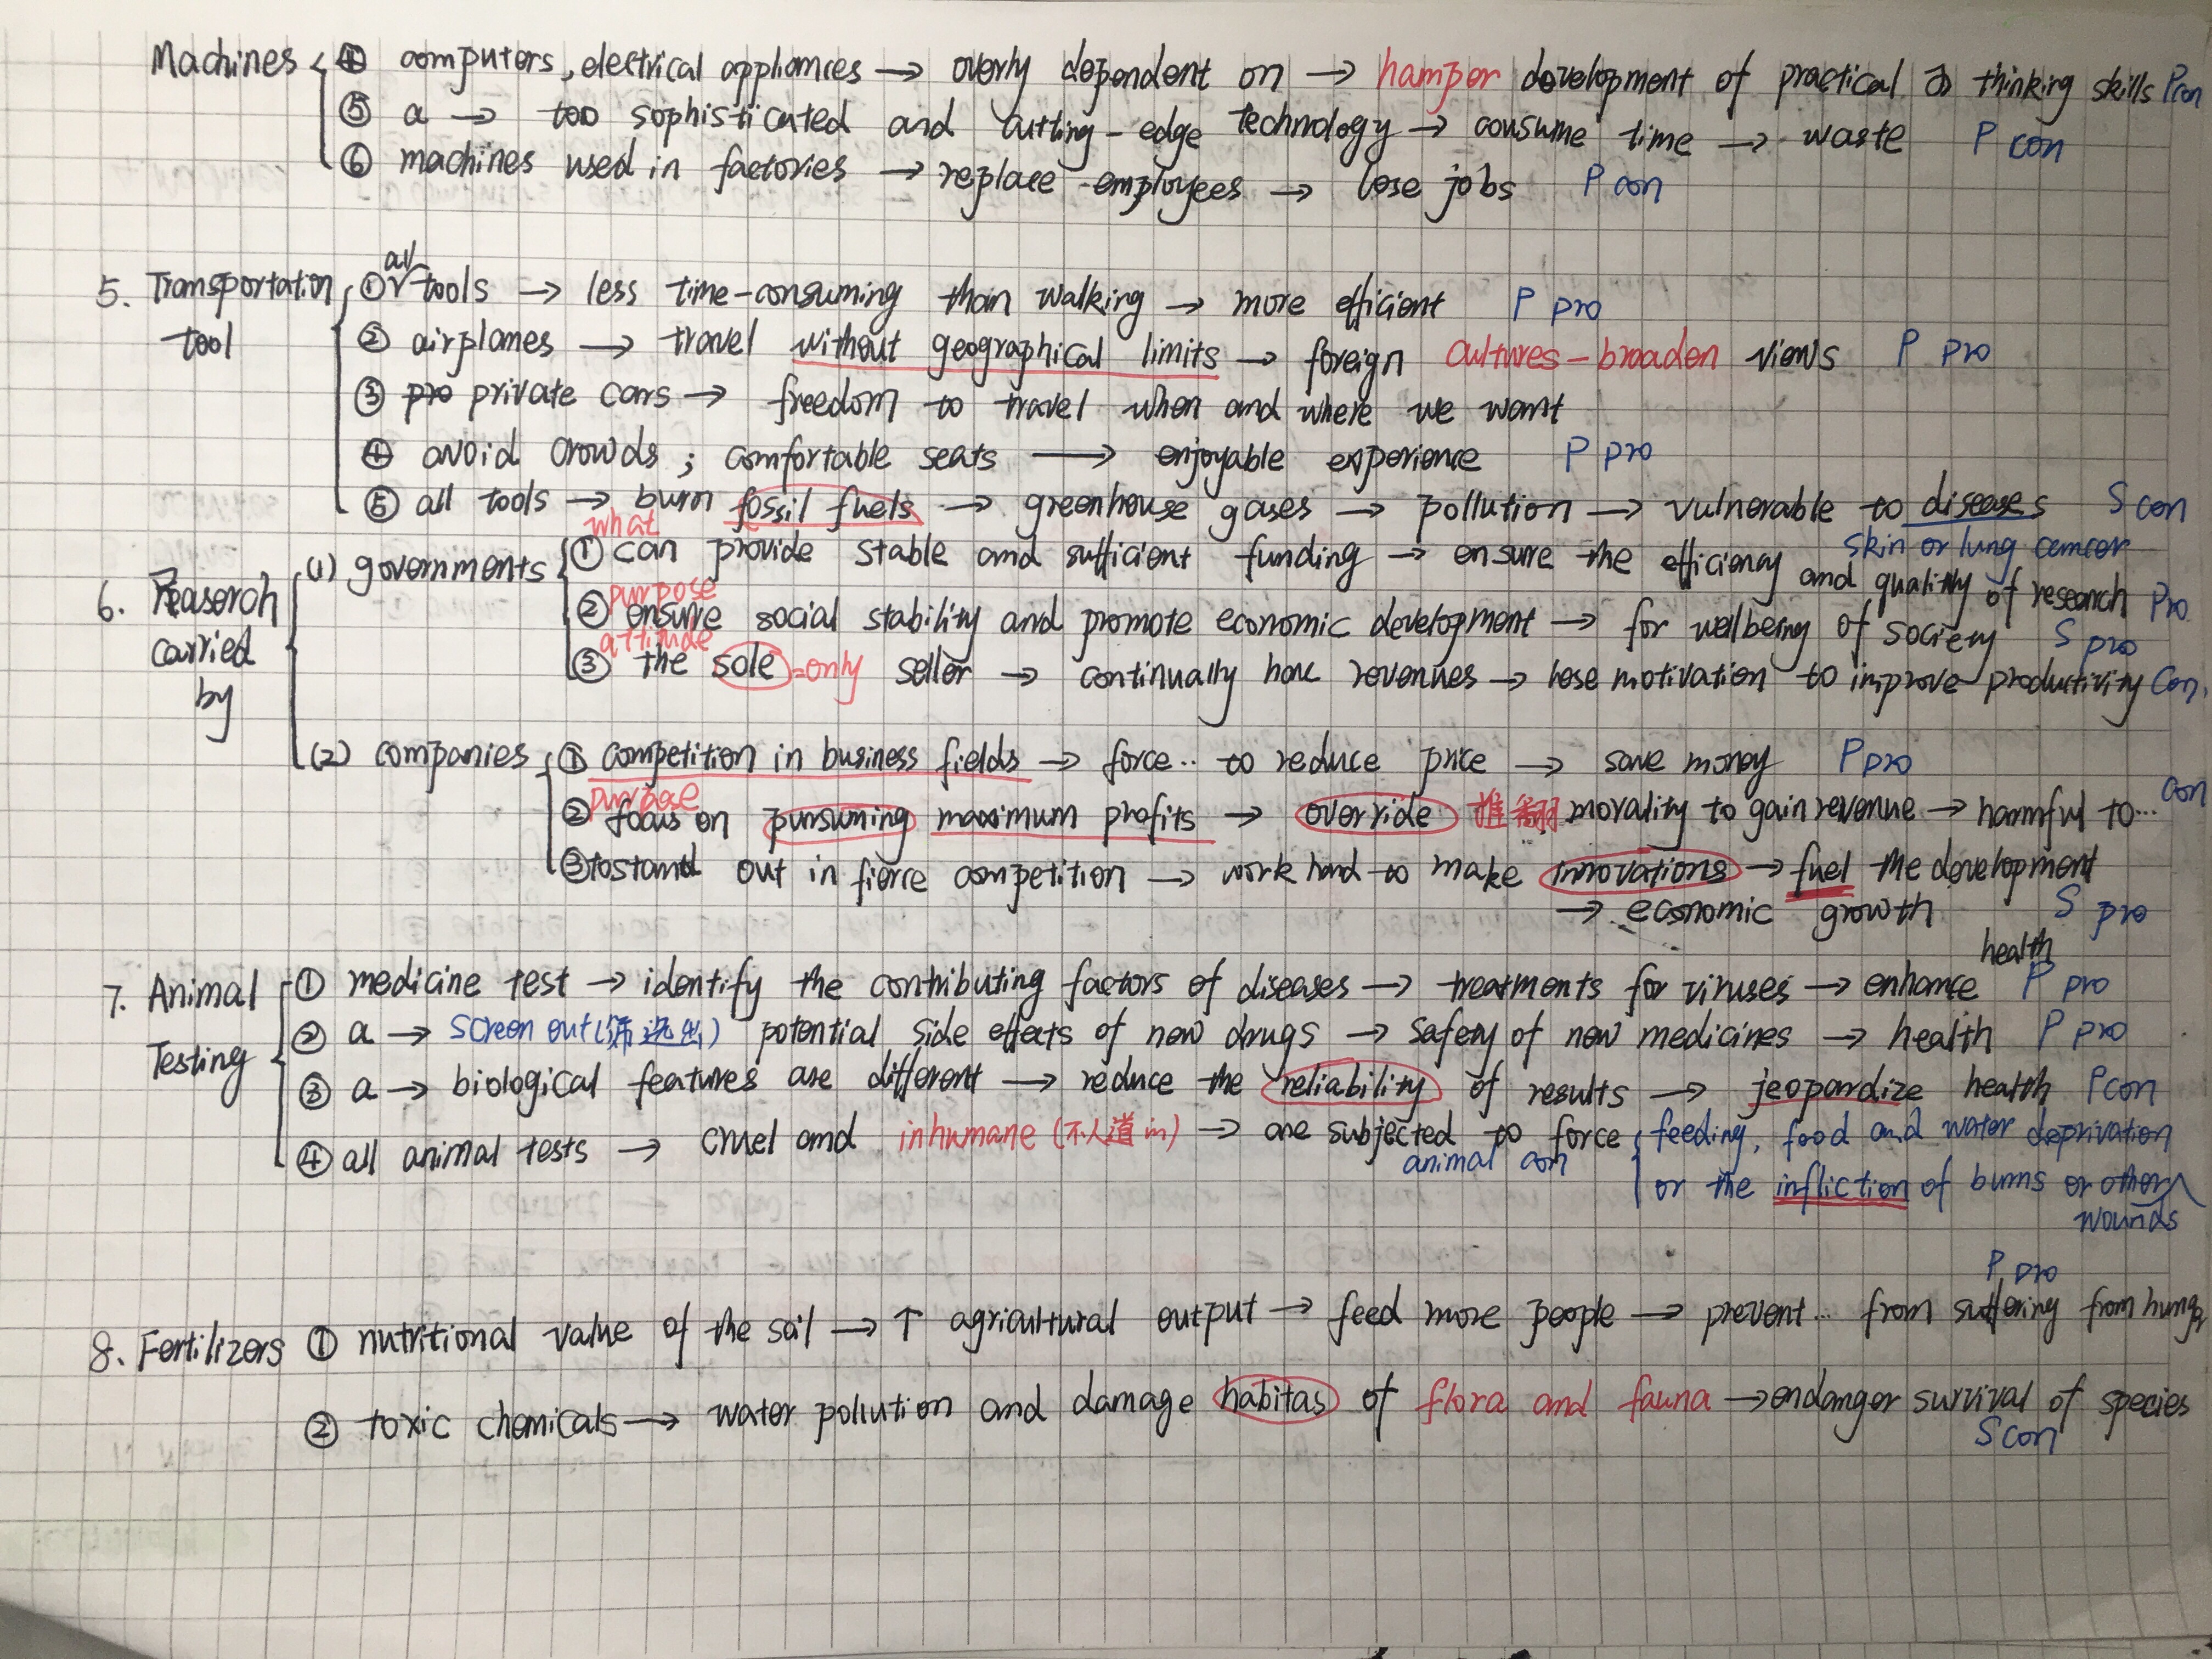 Machines ④ computers, electrical appliances → overly dependent on → hamper development of practical & thinking skills P con
⑤ a → too sophisticated and cutting-edge technology → consume time → waste P con
⑥ machines used in factories → replace employees → lose jobs P con
5. Transportation tool ① all tools → less time-consuming than walking → more efficient P pro
② airplanes → travel without geographical limits → foreign cultures - broaden views P pro
③ pro private cars → freedom to travel when and where we want
④ avoid crowds ; comfortable seats → enjoyable experience P pro
⑤ all tools → burn fossil fuels → greenhouse gases → pollution → vulnerable to diseases S con
skin or lung cancer
6. Reaserch carried by
(1) governments ① what can provide stable and sufficient funding → ensure the efficiency and quality of research Pro
② purpose ensure social stability and promote economic development → for wellbeing of society S pro
③ attitude the sole =only seller → continually have revenues → lose motivation to improve productivity Con.
(2) companies ① competition in business fields → force.. to reduce price → save money P pro
② purpose focus on pursuming maximum profits → override 推翻 morality to gain revenue → harmful to... con
③ to stand out in fierce competition → work hard to make innovations → fuel the development
→ economic growth S pro
7. Animal Testing ① medicine test → identify the contributing factors of diseases → treatments for viruses → enhance health P pro
② a → screen out (筛选出) potential side effects of new drugs → safety of new medicines → health P pro
③ a → biological features are different → reduce the reliability of results → jeopardize health P con
④ all animal tests → cruel and inhumane (不人道的) → are subjected to force feeding, food and water deprivation
animal con
or the infliction of burns or other wounds
P pro
8. Fertilizers ① nutritional value of the soil → ↑ agricultural output → feed more people → prevent... from suffering from hunger
② toxic chemicals → water pollution and damage habitas of flora and fauna → endanger survival of species
S con